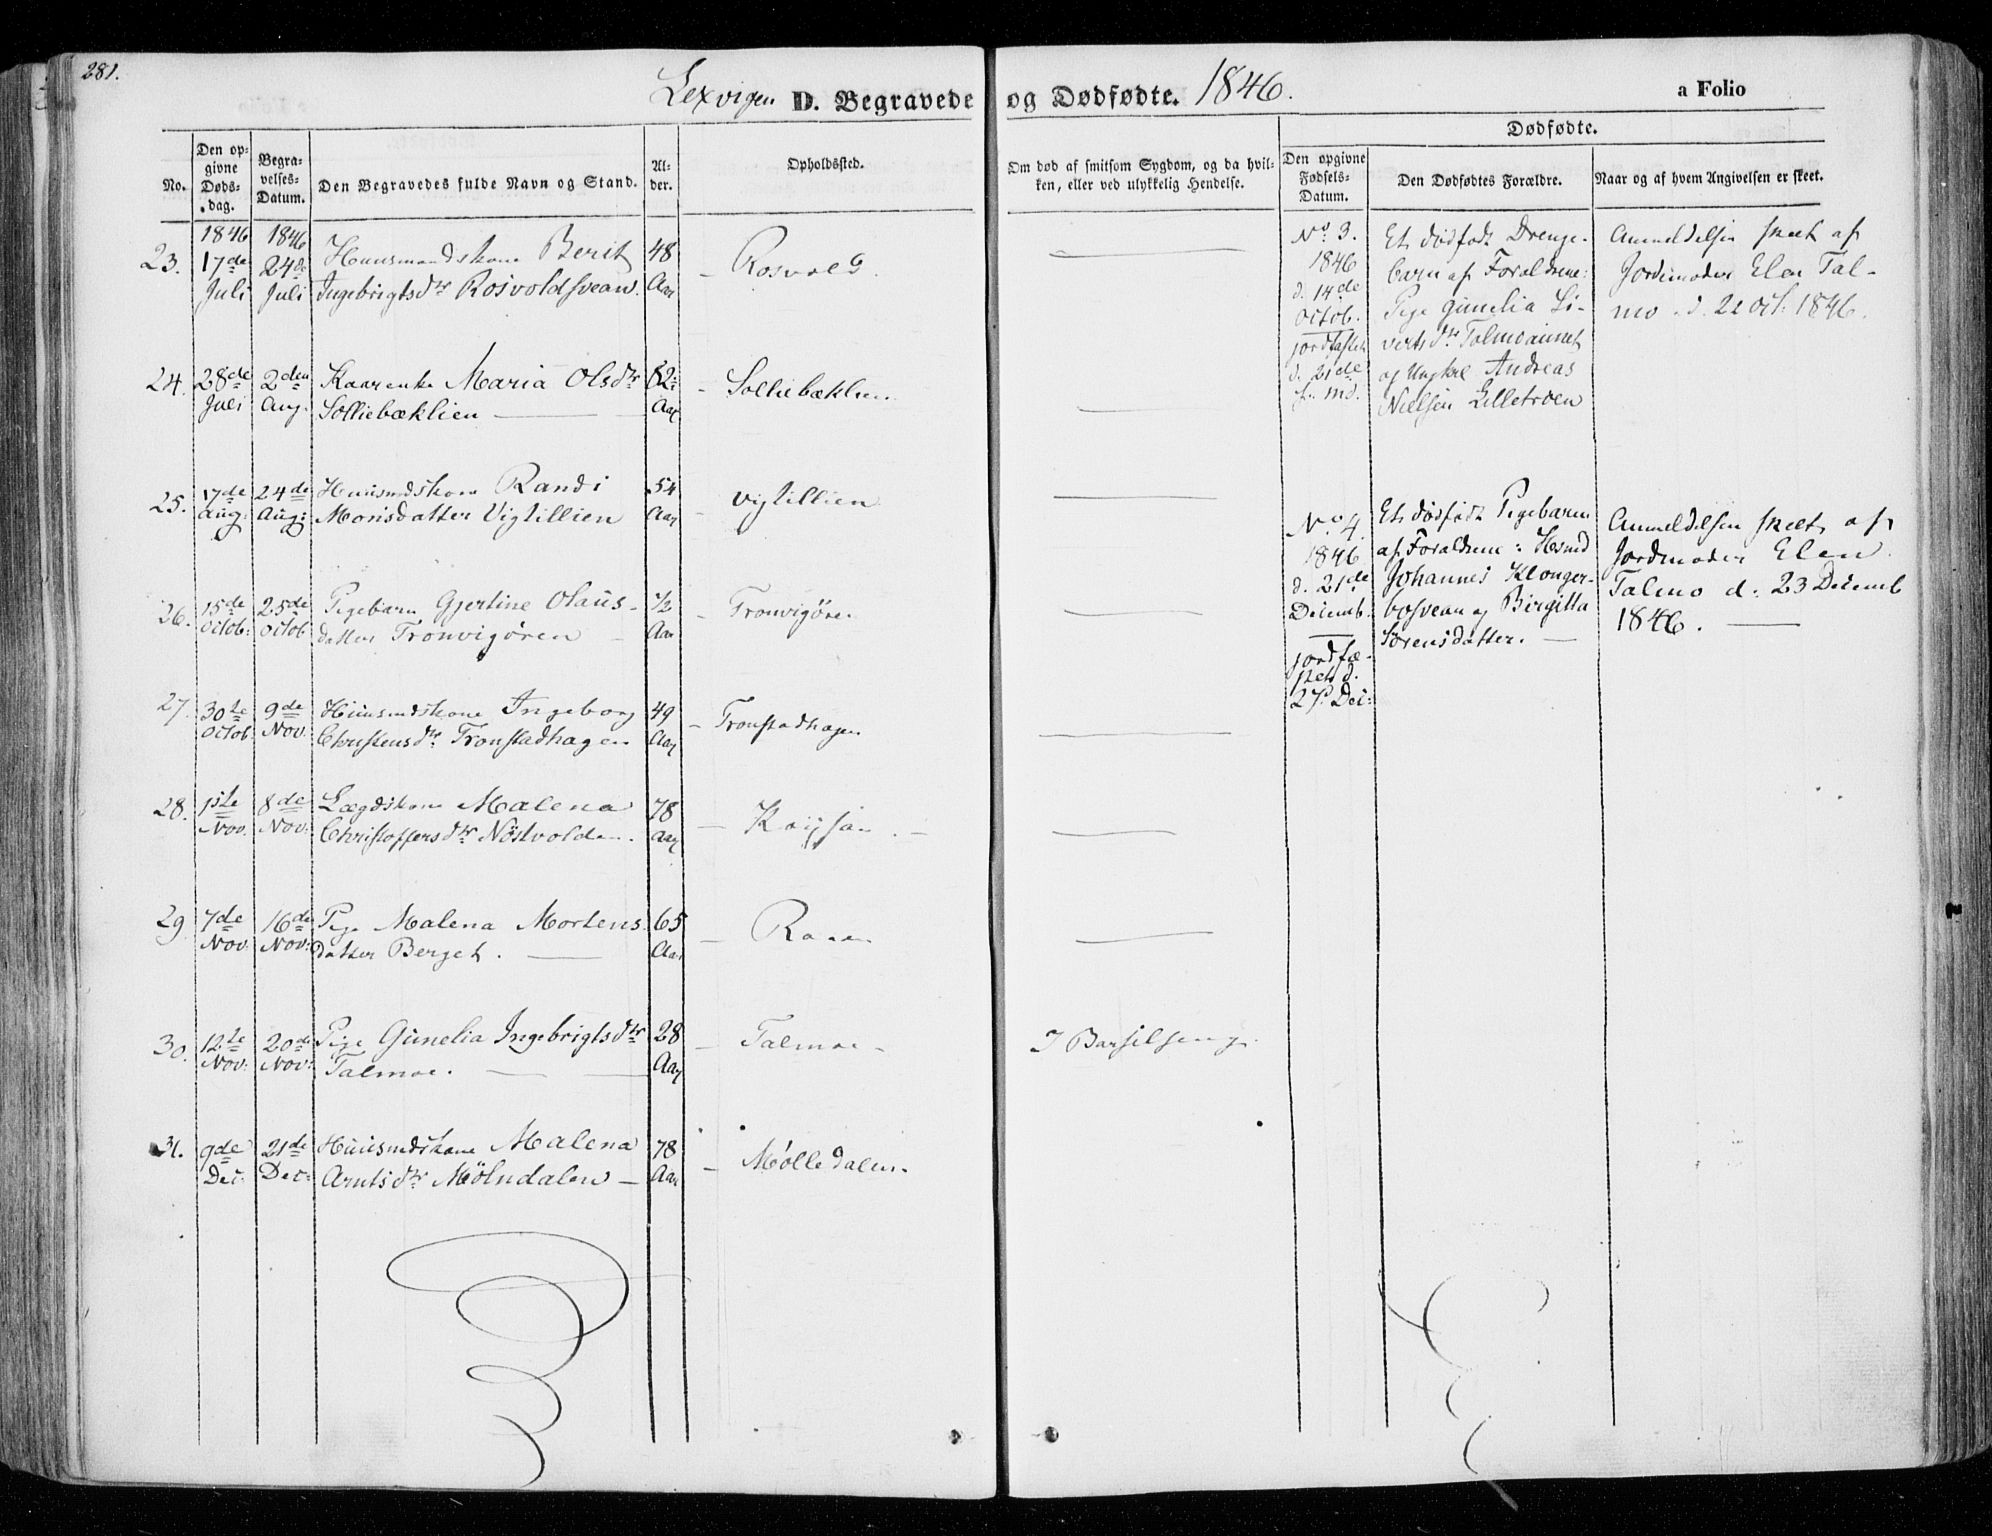 281.
Lexvigen D. Begravede og Dødfødte. 1846.
a Folio
No.
Den op-
givne
Døds-
dag.
Begra-
velses-
Datum.
Den Begravedes fulde Navn og Stand.
Al-
der.
Opholdssted.
Om død af smitsom Sygdom, og da hvil-
ken, eller ved ulykkelig Hendelse.
Dødfødte.
Den opgivne
Fødsels-
Datum.
Den Dødfødtes Forældre.
Naar og af hvem Angivelsen er skeet.
23. 1846 17de Juli 1846 24de Juli Huusmandskone Berit
Ingebrigtsdtr Rosvoldsvean. 48 Aar - Rosvold.
24. 28de Juli 2den Aug. Maria Olsdtr
Solliebæklien 62 Aar - Solliebæklien
25. 17de Aug: 24de Aug: Huusmdskone Randi
Monsdatter Vigtillien 54 Aar - Vigtillien
26. 15de Octob: 25de Octob Pigebarn Gjertine Olaus-
datter Tronvigøren 1/2 Aar - Tronvigøren
27. 30te Octob 9de Nov: Huusmdskone Ingeborg
Christensdtr Tronstadhagen 49 Aar - Tronstadhagen
28. 1ste Nov. 8de Nov: Lægdskone Malena
Christoffersdtr Nöstvolden. 78 Aar
29 7de Nov: 16de Nov: Pige Malena Mortens
datter Berget. 65 Aar
30. 12te Nov: 20de Nov: Pige Gunelia Ingebrigtsdtr
Talmoe. 28 Aar - Talmoe - I Barselseng.
31. 9de Dec: 21de Dec: Huusmdskone Malena
Arntsdtr Mölndalen 78 Aar - Mølledalen.
No. 3.
1846
d. 14de
Octob.
jordfæstet
d. 21de
s. Md.
Et dødfødt Drenge-
barn af Forældrene:
Pige Gunelia Si-
vertsdtr Talmoaunet
og Ungkel Andreas
Nielsen Lilletroen
Anmeldelsen skeet af
Jordemoder Elen Tal-
mo d. 22 Oct: 1846.
No. 4.
1846
d. 21de
Decemb.
jordfæ-
stet d.
27. Dec:
Et dødfødt Pigebarn
af Forældrene: Hsmd
Johannes Klonger-
bosvean og Birgitta
Sørensdatter.
Anmeldelsen skeet af
Jordmoder Elen
Talmo d. 23 Decemb
1846.